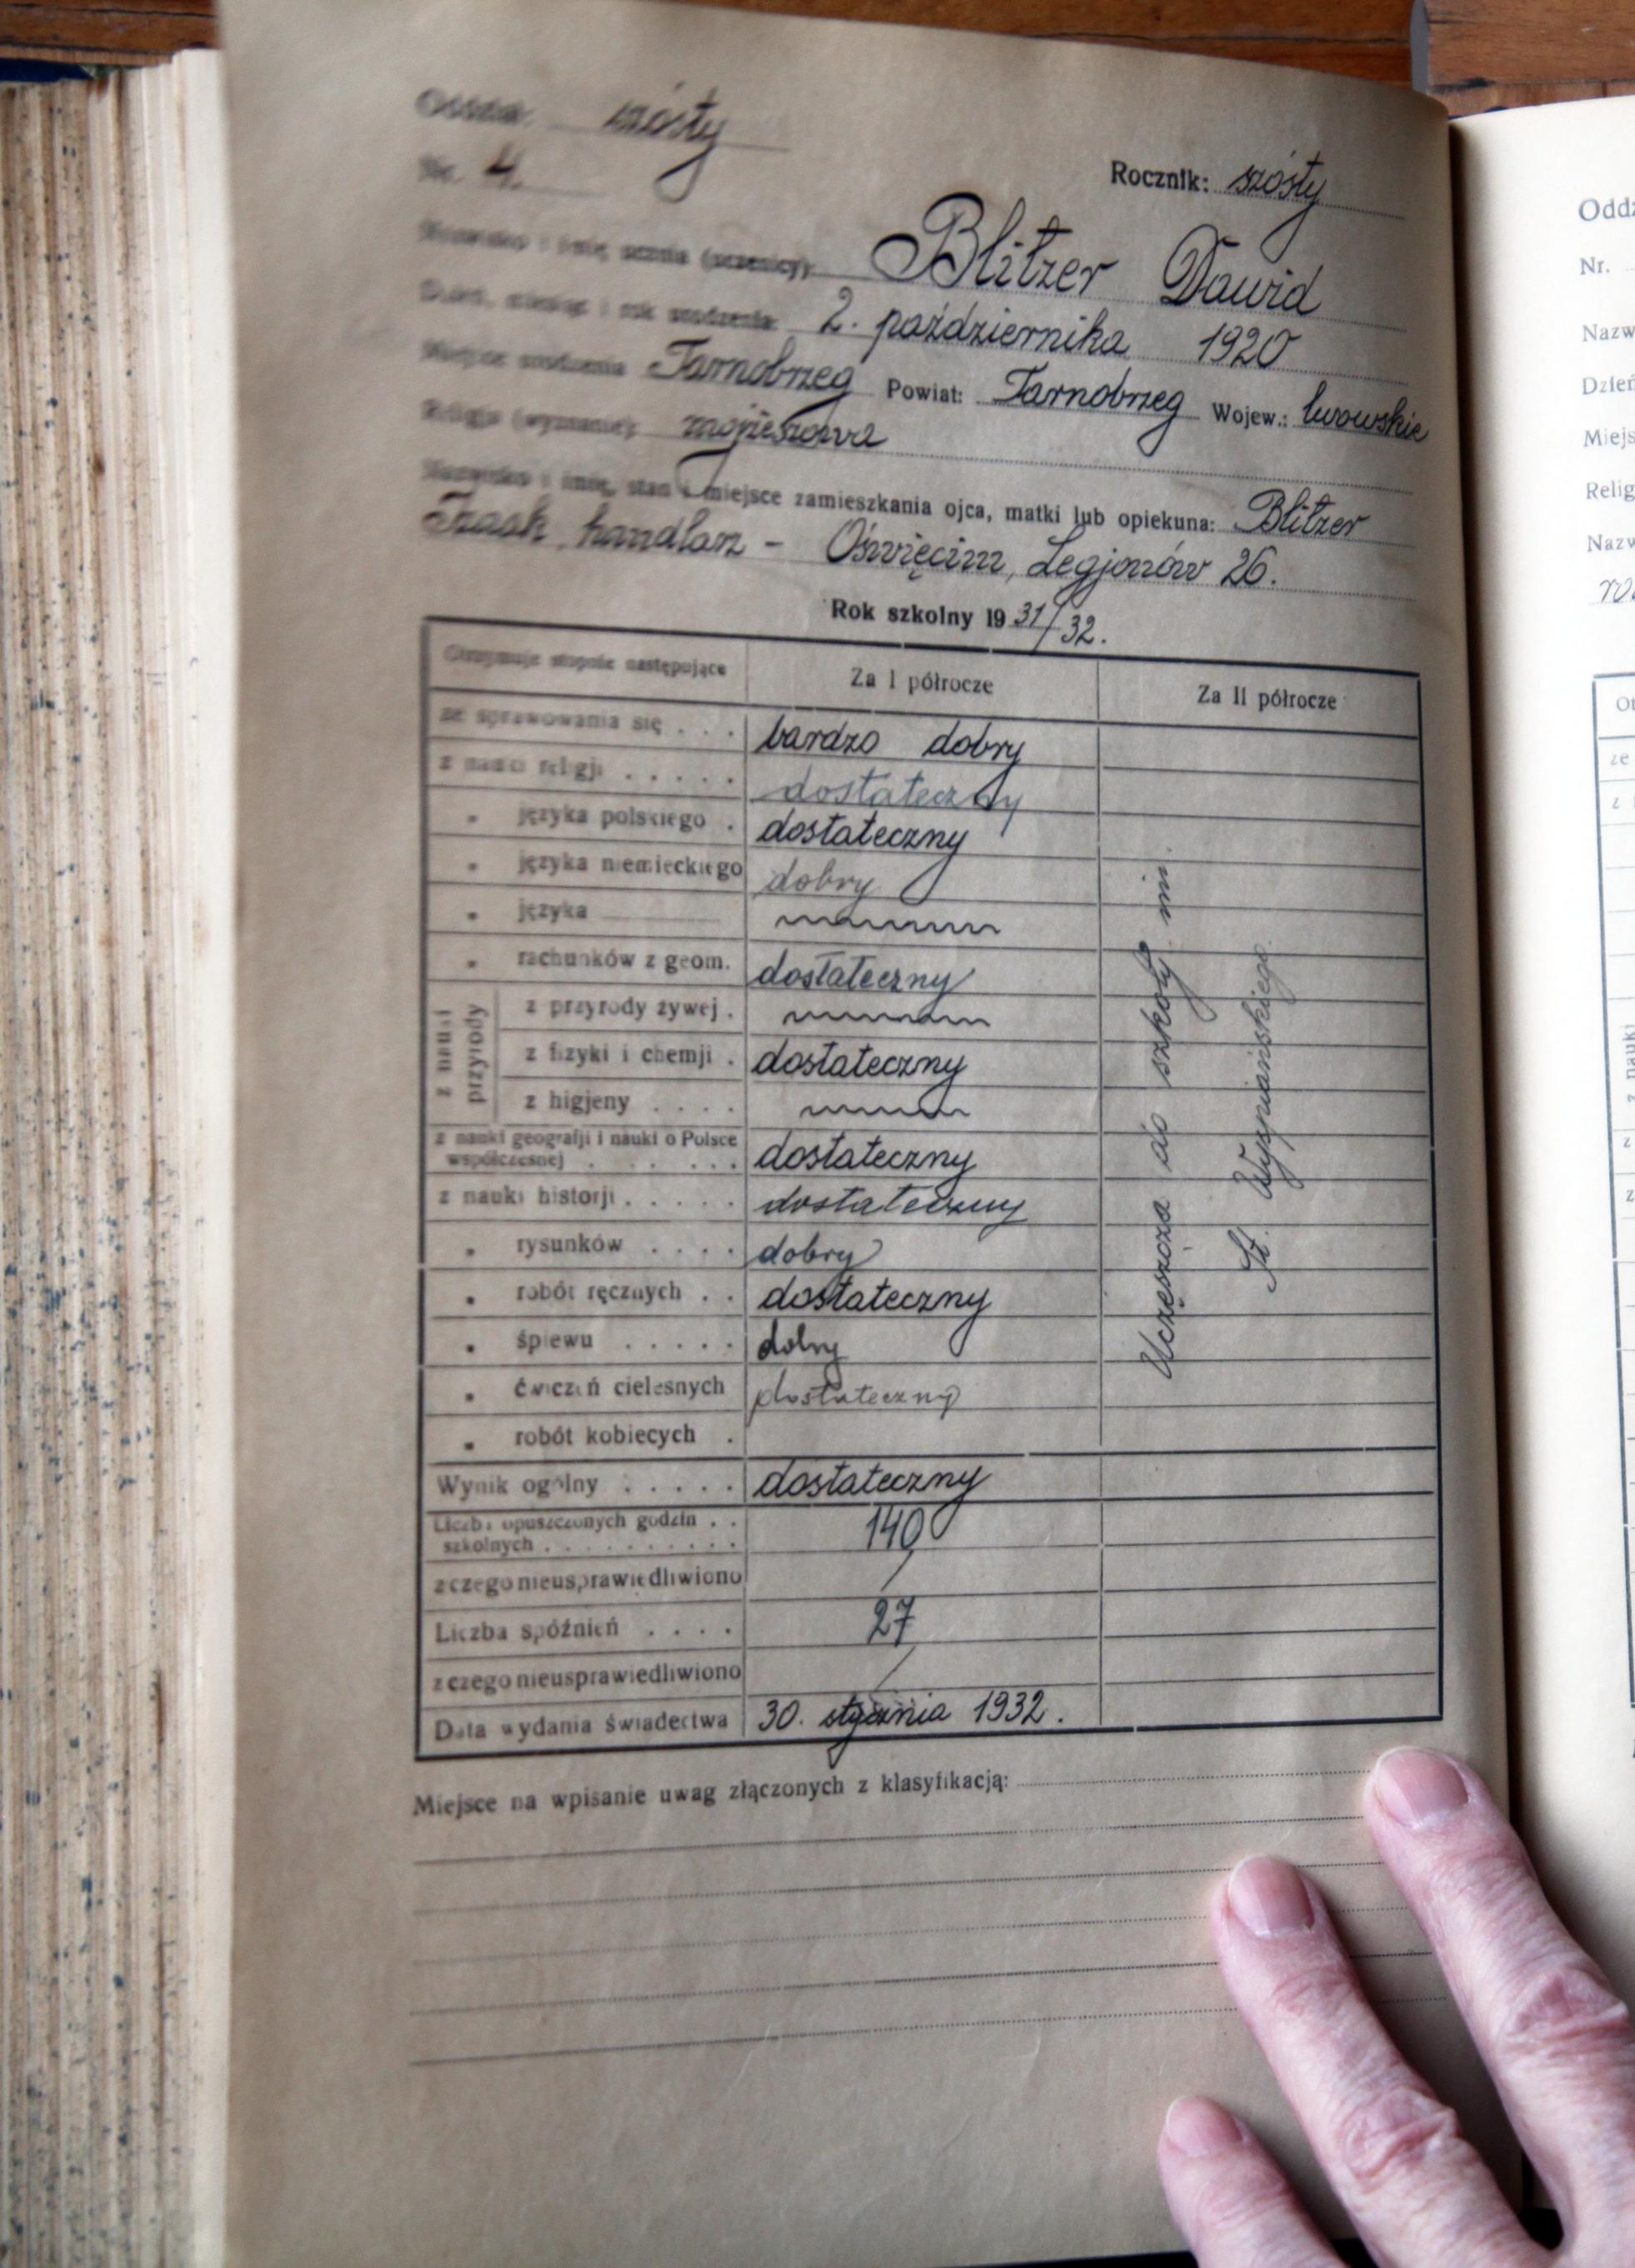 Oddział: szósty
Nr. 4.
Rocznik: szósty
Nazwisko i imię ucznia (uczenicy): Blitzer Dawid
Dzień, miesiąc i rok urodzenia 2. października 1920
Miejsce urodzenia Tarnobrzeg Powiat: Tarnobrzeg Wojew.: lwowskie
Religja (wyznanie): mojżeszowa
Nazwisko i imię, stan i miejsce zamieszkania ojca, matki lub opiekuna: Blitzer
handlarz - Oświęcim, Legjonów 26.
Rok szkolny 1931/32.
Otrzymuje stopnie następujące Za I półrocze Za II półrocze
ze sprawowania się . . . bardzo dobry
z nauki religji . . . . . dostateczny
" języka polskiego . dostateczny
" języka niemieckiego dobry
" języka
" rachunków z geom. dostateczny
z nauki przyrody
z przyrody żywej .
z fizyki i chemji . dostateczny
z higjeny . . . .
z nauki geografji i nauki o Polsce
współczesnej . . . . . . . dostateczny
z nauki historji . . . . . dostateczny
" rysunków . . . . dobry
" robót ręcznych . . dostateczny
" śpiewu . . . . . dobry
" ćwiczeń cielesnych dostateczny
" robót kobiecych .
Wynik ogólny . . . . . dostateczny
Liczba opuszczonych godzin . .
szkolnych . . . . . . . . . . 140
z czego nieusprawiedliwiono /
Liczba spóźnień . . . . 27
z czego nieusprawiedliwiono /
Data wydania świadectwa 30. stycznia 1932.
Uczęszcza do szkoły im.
St. Wyspiańskiego.
Miejsce na wpisanie uwag złączonych z klasyfikacją:
Nr.
Nazw
Dzień
Miejs
Relig
Nazw
ze
z nauki
z
z